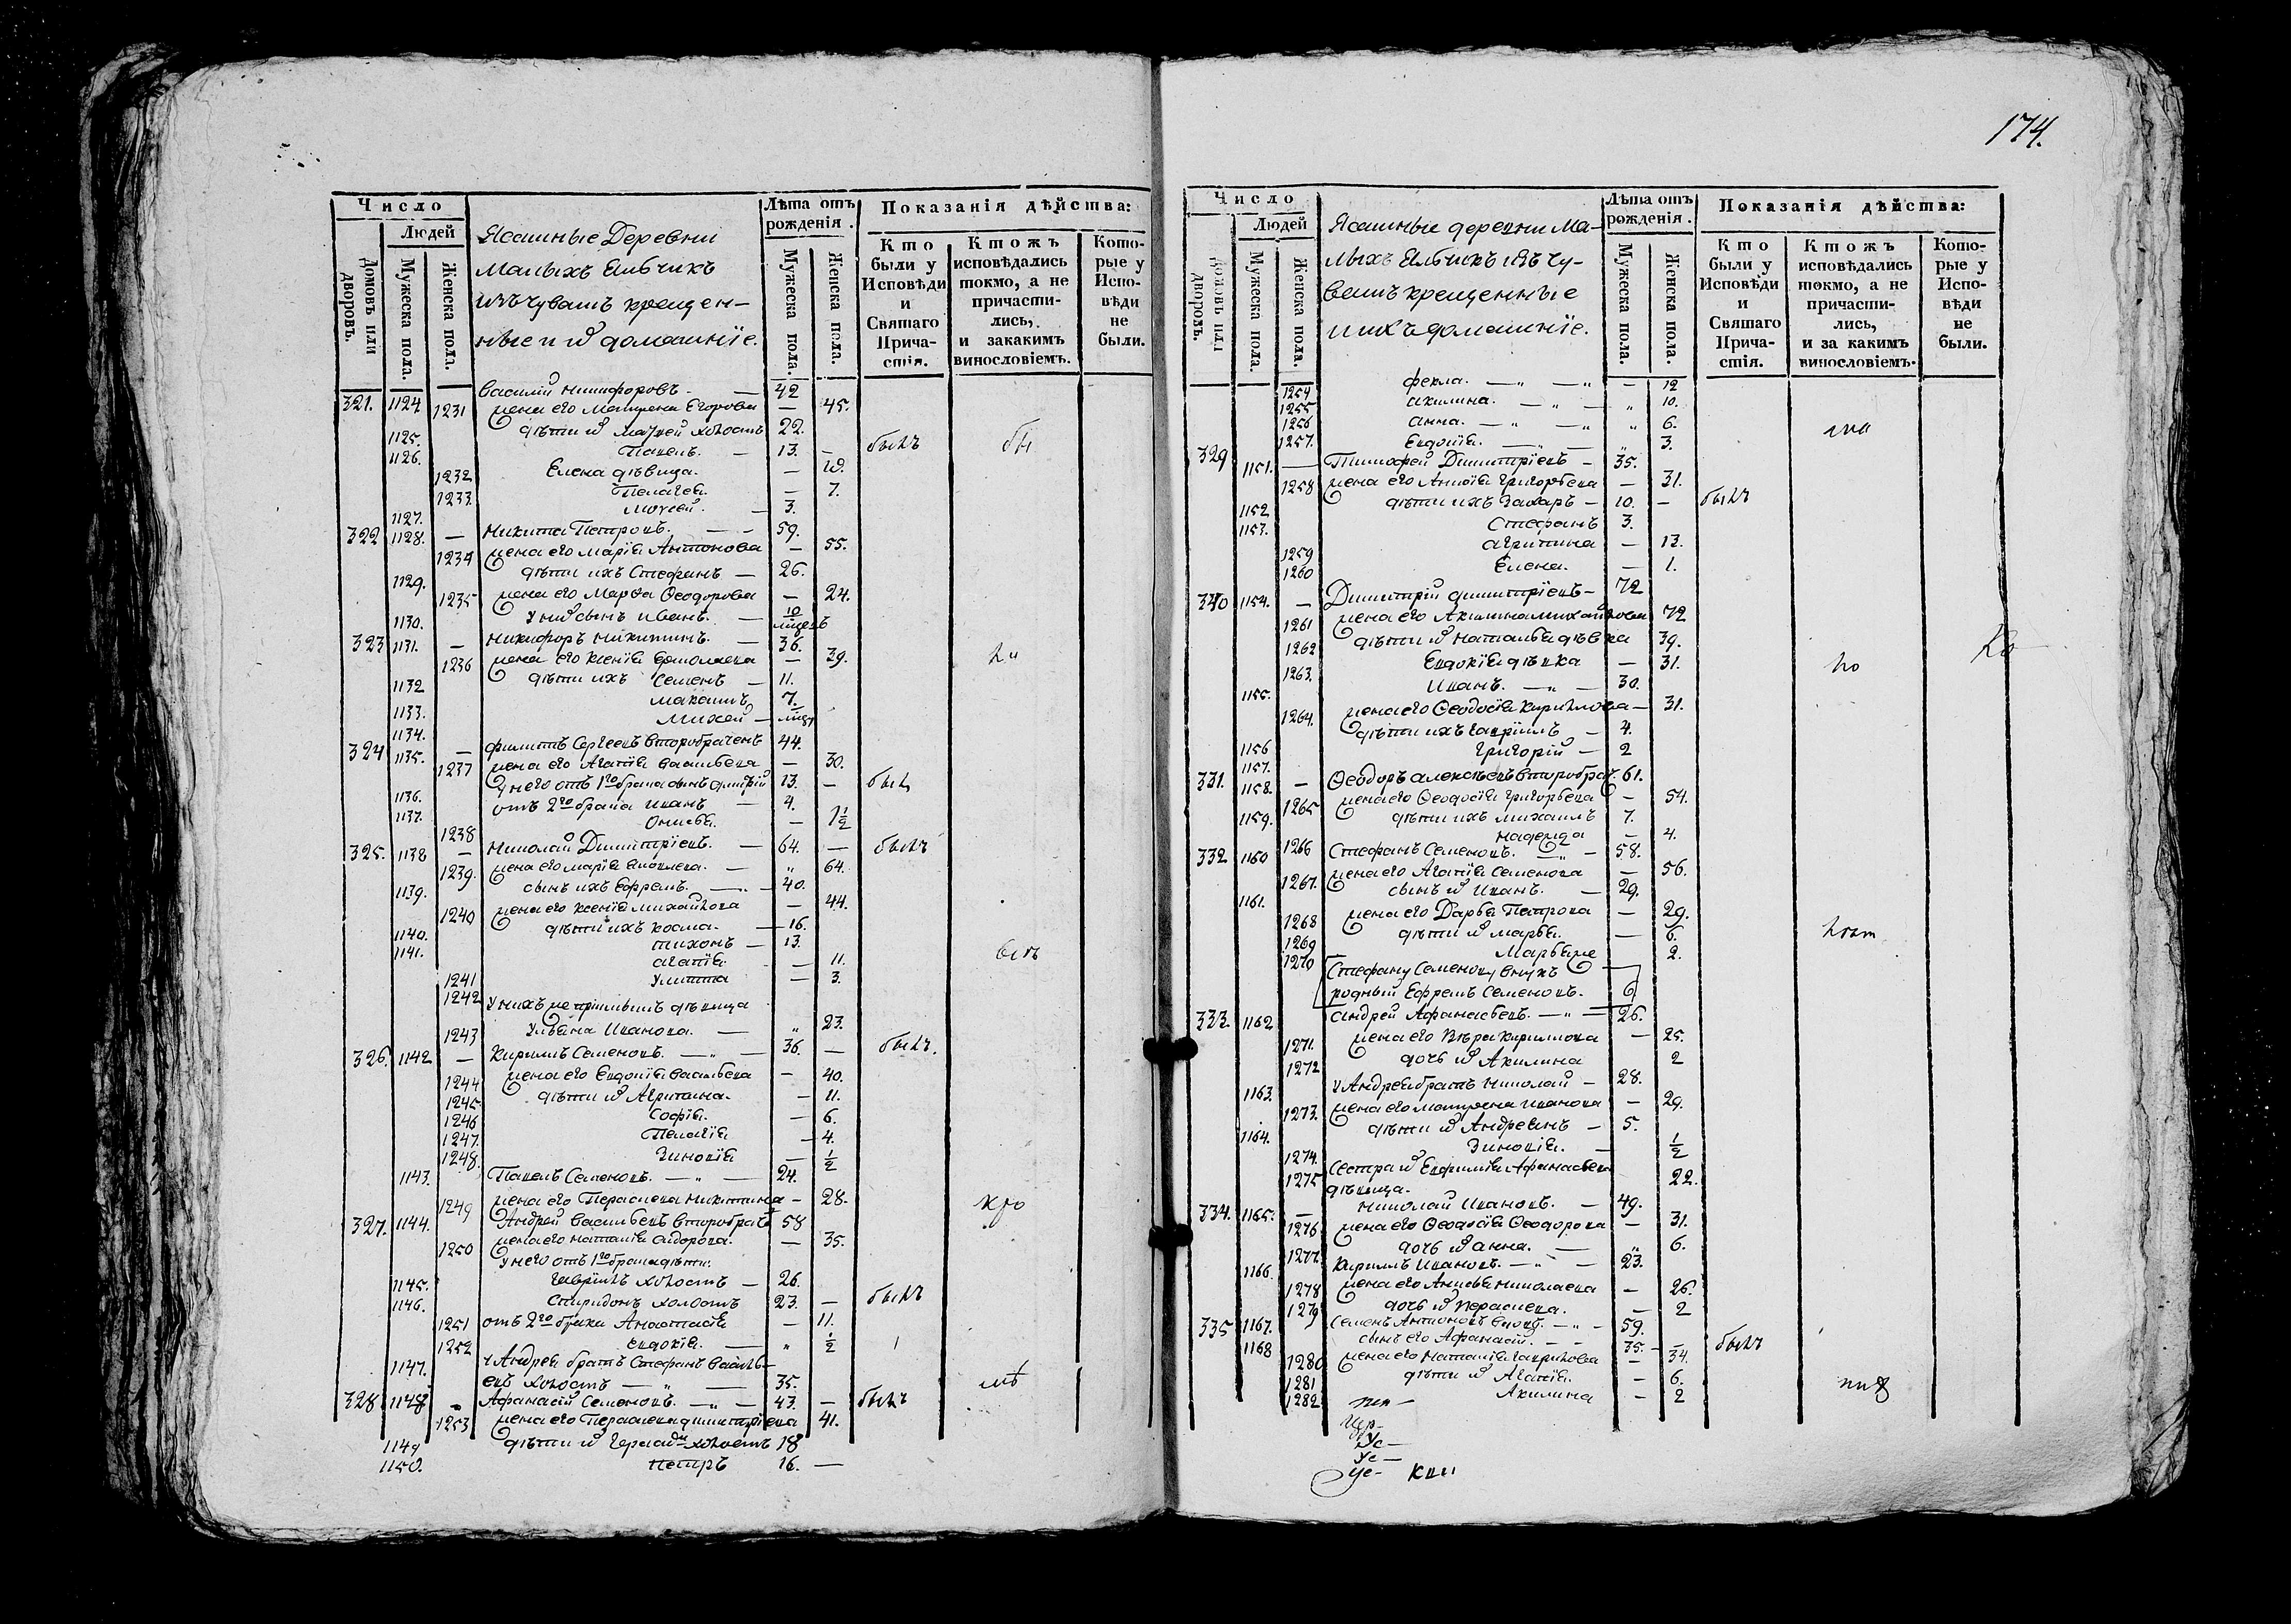 Число
Людей
Домовъ или дворовъ.
Мужеска пола.
Женска пола.
Ясашные Деревни
Малыхъ Яльчикъ
изъ чувашъ крещен-
ные и ихъ домашніе.
Лѣта отъ рожденія.
Мужеска пола.
Женска пола.
Показанія дѣйства:
Кто были у Исповѣди и Святаго Прича-стія.
Ктожъ исповѣдались токмо, а не причасти-лись, и закакимъ винословіемъ.
Кото-рые у Испо-вѣди не были.
321. 1124 Василій Никифоровъ. — 42
1231 жена его Матрена Егорова — 45.
1125. дѣти их Матѳей холостъ 22.
1126. Павелъ. — 13. — былъ
1232 Елена дѣвица. —
1233. Пелагея. — 7.
1127. Моѵсей. — 3.
322 1128. — Никита Петровъ. — 59.
1234 жена его Марія Антонова — 55.
1129. дѣти ихъ Стефанъ — 26.
1235 жена его Марѳа Ѳеодорова — 24.
1130. у них сынъ Иванъ. — 10 мѣцевъ
323 1131. — Никифоръ Никитинъ. — 36.
1236 жена его Ксенія Ермолаева — 39.
1132 дѣти ихъ Семенъ — 11.
1133. Максимъ 7.
1134. Михей —
324 1135. — Филиппъ Сергеевъ второбраченъ 44.
1237 жена его Агапія Васильева — 30.
1136. у него отъ 1го брака сынъ Дмитрій 13. —
1137. отъ 2го брака Иванъ — 4.
1238 Онисья. — 1½
325. 1138 — Николай Димитріевъ. — 64. — былъ
1239. жена его Марія Яковлева. — „ 64.
1139. сынъ ихъ Ефремъ. — 40.
1240 жена его Ксенія Михайлова — 44.
1140. дѣти ихъ Косма. — 16.
1141. Тихонъ — 13.
1241 Агапія — 11.
1242 Улитта — 3.
у нихъ же дѣвица
1243 Ульяна Иванова. — „ 23.
326. 1142 — Кириллъ Семеновъ. — „ — 36. — былъ.
1244 жена его Евдокія Васильева — 40.
1245 дѣти их Агрипина. — 11.
1246 Софія. — 6.
1247. Пелагія — 4.
1248. Зиновія — ½
1143. Павелъ Семеновъ. — „ — 24.
1249 жена его Параскева Никитина — 28.
327. 1144. Андрей Васильевъ второбрач 58
1250 жена его Наталія Сидорова. — 35.
у него отъ 1го брака дѣти.
1145. Гавріилъ холостъ — 26.
1146. Спиридонъ холостъ 23. — былъ
1251 отъ 2го брака Анастасія — 11.
1252 Евдокія. — „ ½
1147. у Андрея братъ Стефанъ Василь-
евъ холостъ — „ — 35.
328 1148 — Афанасій Семеновъ. — „ — 43. — былъ
1253 жена его Параскева Димитріева 41.
1149 дѣти их холостъ 18
1150. Петръ 16. —
174.
Число
Людей
Домовъ или дворовъ.
Мужеска пола
Женска пола.
Ясашные деревни Ма-
лыхъ Яльчикъ изъ чу-
вашъ крещенные
и ихъ домашніе.
Лѣта отъ рожденія.
Мужеска пола.
Женска пола.
Показанія дѣйства:
Кто были у Исповѣди и Святаго Прича-стія.
Ктожъ исповѣдались токмо, а не причасти-лись, и за какимъ винословіемъ.
Кото-рые у Испо-вѣди не были.
1254 Фекла. — „ — „ — 12
1255 Акилина. — „ — „ 10.
1256 Анна. — „ — „ „ 6.
1257. Евдокія. — „ — „ 3.
329 1151. — Тимофей Димитріевъ — 35.
1258 жена его Анисія Григорьева — 31.
1152 дѣти ихъ Захаръ — 10. — былъ
1153. Стефанъ 3.
1259 Агрипина — 13.
1260 Елена. — 1.
340 1154. — Димитрій Димитріевъ — 72
1261 жена его Акилина Михайлова 72
1262 дѣти их Наталья дѣвка 39.
1263. Евдокія дѣвка — 31.
1155. Иванъ. — „ — 30.
1264. жена его Ѳеодосія Кирилова — 31.
1156 дѣти ихъ Гавріилъ — 4.
1157. Григорій — 2
331. 1158. — Ѳеодоръ Алексѣевъ второбрач. 61.
1265 жена его Ѳеодосія Григорьева — 54.
1159. дѣти ихъ Михаилъ 7.
1266 Надежда — 4.
332 1160 Стефанъ Семеновъ. — „ — 58.
1267. жена его Агапія Семенова — 56.
1161. сынъ их Иванъ. — 29.
1268 жена его Дарья Петрова — 29.
1269 дѣти их Марья. — 6.
1270 Марья же 2.
Стефану Семенову внукъ
родный Ефремъ Семеновъ. 6
333. 1162 Андрей Афанасьевъ. — „ — 26.
1271. жена его Вѣра Кирилова — 25.
1272 дочь их Акилина 2
1163. у Андрея братъ Николай — 28.
1273. жена его Матрена Иванова — 29.
1164. дѣти их — 5.
1274. Зиновія. — ½
1275 Сестра их Евфимія Афанасьева 22.
дѣвица.
334. 1165. — Николай Ивановъ. — 49.
1276 жена его Ѳеодосія Ѳеодорова — 31.
1277. дочь их Анна. — „ 6.
1166. Кириллъ Ивановъ. — „ — 23.
1278 жена его Анисья Николаева — 26.
1279 дочь их Параскева. — 2
335 1167. Семенъ Антоновъ вдовъ. — „ — 59.
1168 сынъ его Афанасій. — 35. — былъ
1280 жена его Наталія Гаврилова — 34.
1281 дѣти их Агапія. — 6.
1282 Акилина — 2